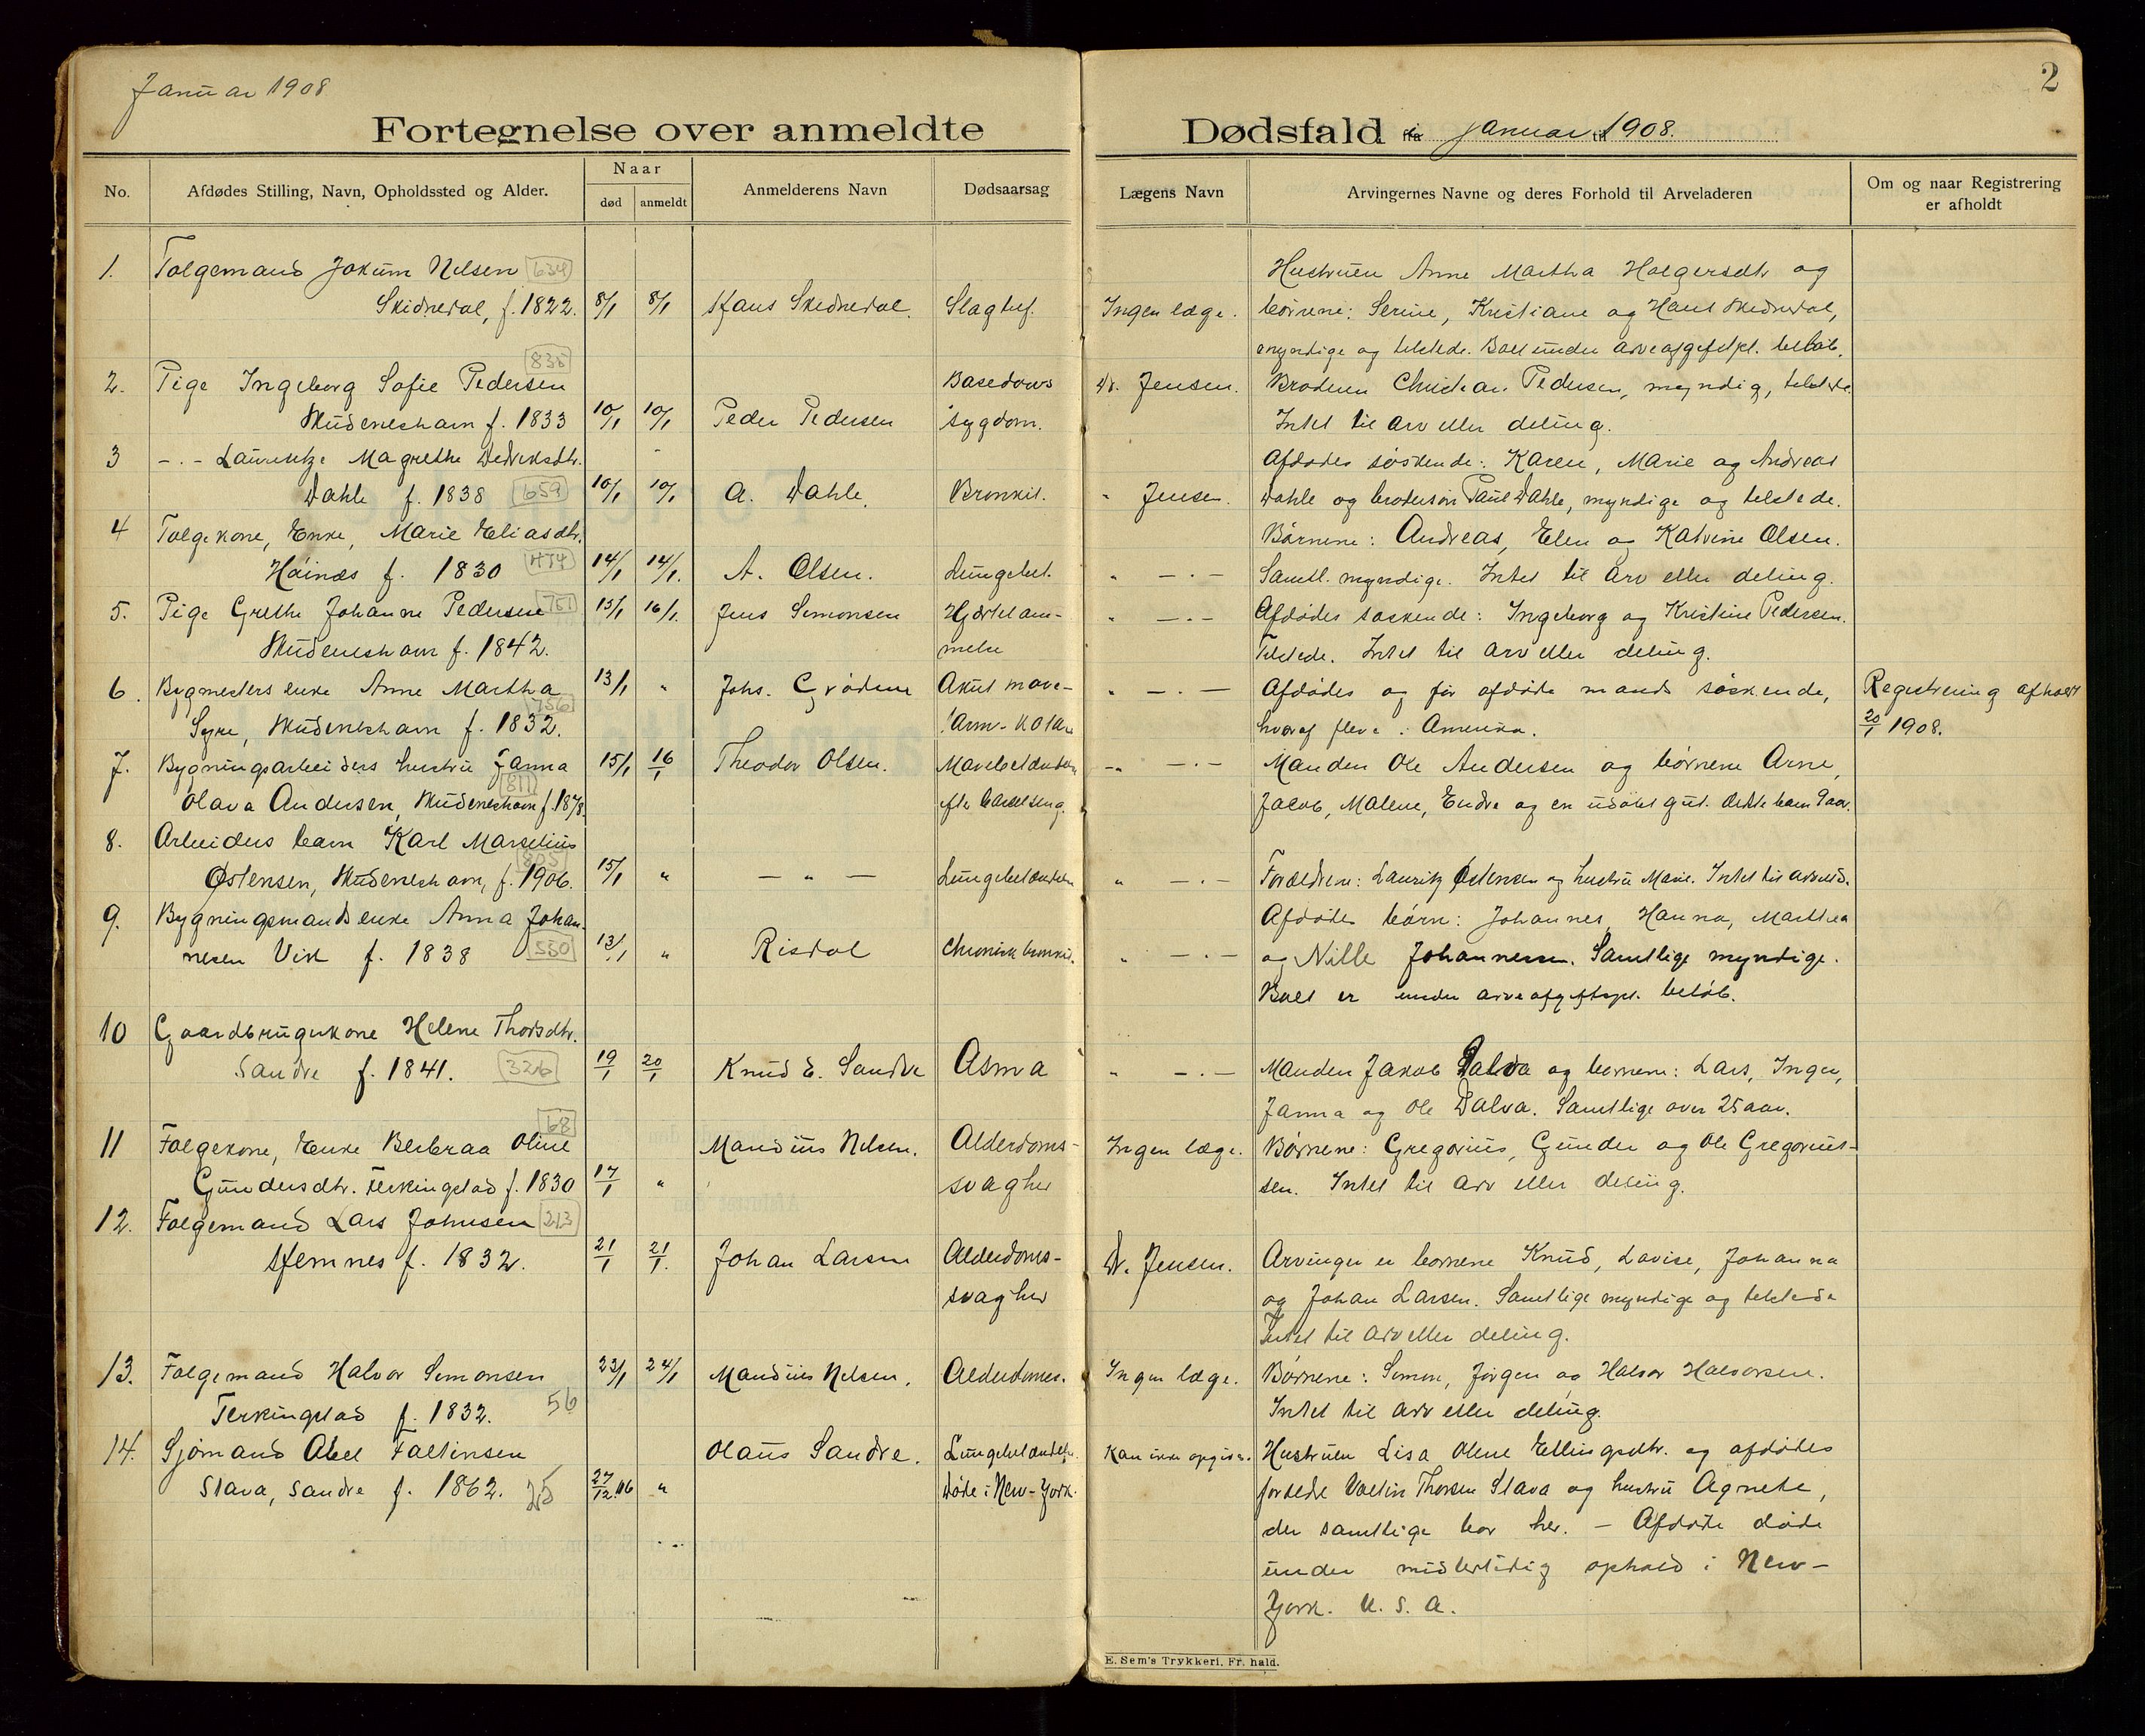 Januar 1908
2
Fortegnelse over anmeldte Dødsfald i Januar 1908.
No.
Afdødes Stilling, Navn, Opholdssted og Alder.
Naar
død
anmeldt
Anmelderens Navn
Dødsaarsag
Lægens Navn
Arvingernes Navne og deres Forhold til Arveladeren
Om og naar Registrering
er afholdt
1. Folgemand Jokum Nilsen 634
Skidnedal, f. 1822. 8/1 8/1 Hans Skidnedal. Slagtilf. Ingen læge.
Hustruen Anne Martha Holgersdtr og
børnene: Serine, Kristiane og Hans Skidnedal,
myndige og tilstede. Boet under arveafgiftspl. beløb.
835
2. Pige Ingeborg Sofie Pedersen
Skudeneshavn f. 1833 10/1 10/1 Peder Pedersen Basedows
sygdom.
Dr. Jensen.
Broderen Christian Pedersen, myndig, tilstede.
Intet til arv eller deling.
3 -.- Lauritze Magrethe Didriksdtr.
Dahle f. 1838 659 10/1 10/1 A. Dahle. Bronkit. " Jensen.
Afdødes søskende: Karen, Marie og Andreas
Dahle og brodersøn Paul Dahle, myndige og tilstede.
4 Folgekone, Enke, Marie Eliasdtr.
Høines f. 1830 474 14/1 14/1. A. Olsen. Lungebet. " -.-
Børnene: Andreas, Elen og Katrine Olsen.
Samtl. myndige. Intet til arv eller deling.
5. Pige Grethe Johanne Pedersen 751
Skudeneshavn f. 1842. 15/1 16/1. Jens Simonsen Hjertelam-
melse
" -.-
Afdødes søskende: Ingeborg og Kristine Pedersen.
Tilstede. Intet til arv eller deling.
6. Bygmesters enke Anne Martha
756
Syre, Skudeneshavn f. 1832. 13/1 " Johs. Grødem Akut mave-
tarm-katar
" -.-
Afdødes og før afdøde mands søskende,
hvoraf flere i Amerika.
Registrering afholdt
20/1 1908.
7. Bygningsarbeiders hustru Janna
811
Olava Andersen, Skudeneshavn f. 1878. 15/1 16/1 Theodor Olsen. Mavebetændelse
efter barselseng.
-" -.-
Manden Ole Andersen og børnene Arne,
Jacob, Malene, Endre og en udøbt gut. Ældste barn 9 aar.
8. Arbeiders barn Karl Marselius
805
Østensen, Skudeneshavn, f. 1906. 15/1 " - " - Lungebetændelse " -.-
Forældrene: Lauritz Østensen og hustru Marie. Intet til arv eld.
9. Bygningsmands enke Anna Johan-
nesen Vik f. 1838 550 13/1 " Risdal Chronisk bronkit. " -.-
Afdødes børn: Johannes, Hanna, Marthea
og Nille Johannesen. Samtlige myndige.
Boet er under arveafgiftspl. beløb.
10 Gaardbrugerkone Helene Thorsdtr.
Sandve f. 1841. 326 19/1 20/1 Knud E. Sandve Asma " -.-
Manden Jakob Dalva og børnene: Lars, Inger,
Janna og Ole Dalva. Samtlige over 25 aar.
68
11 Folgekone, Enke Berbraa Oline
Gundersdtr. Ferkingstad f. 1830 17/1 " Mandius Nilsen. Alderdoms-
svaghed
Ingen læge.
Børnene: Gregorius, Gunder og Ole Gregorius-
sen. Intet til arv eller deling.
12. Folgemand Lars Johnsen 213
Hemnes f. 1832. 21/1 21/1. Johan Larsen Alderdoms-
svaghed
Dr. Jensen.
Arvinger er børnene Knud, Lovise, Johanna
og Johan Larsen. Samtlige myndige og tilstede
Intet til arv eller deling.
13. Folgemand Halvor Simonsen
Ferkingstad f. 1832. 56 23/1 24/1 Mandius Nilsen. Alderdomss. Ingen læge.
Børnene: Simon, Jørgen og Halvor Halvorsen.
Intet til arv eller deling.
14. Sjømand Abel Faltinsen
Stava, Sandve f. 1862. 25 27/12 06 " Olaus Sandve. Lungebetændelse.
Døde i New-York.
Kan ikke opgives.
Hustruen Lisa Oline Ellingsdtr. og afdødes
forældre Valtin Thorsen Stava og hustru Agnete,
der samtlige bor her. - Afdøde døde
under midlertidig ophold i New-
York. U. S. A.
E. Sem's Trykkeri, Fr. hald.